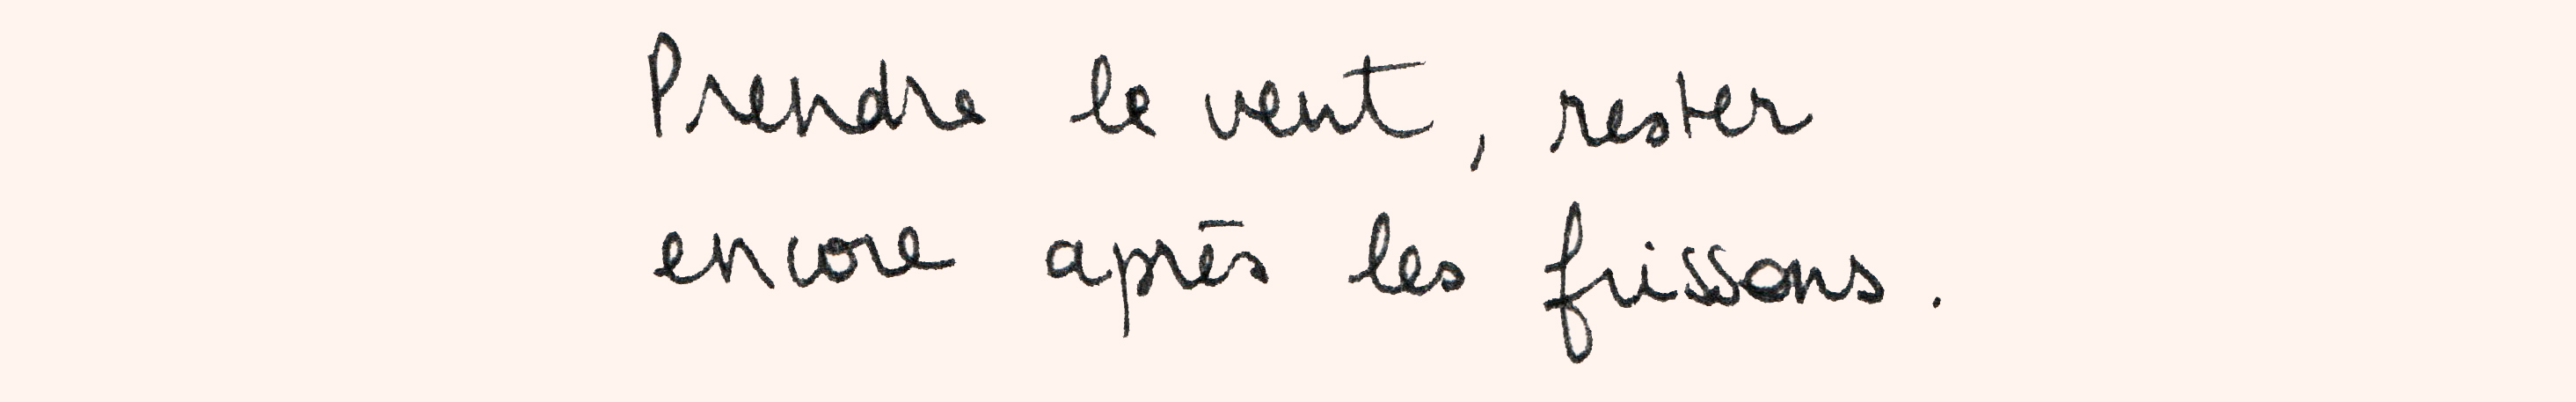 Prendre le vent, rester
encore après les frissons.